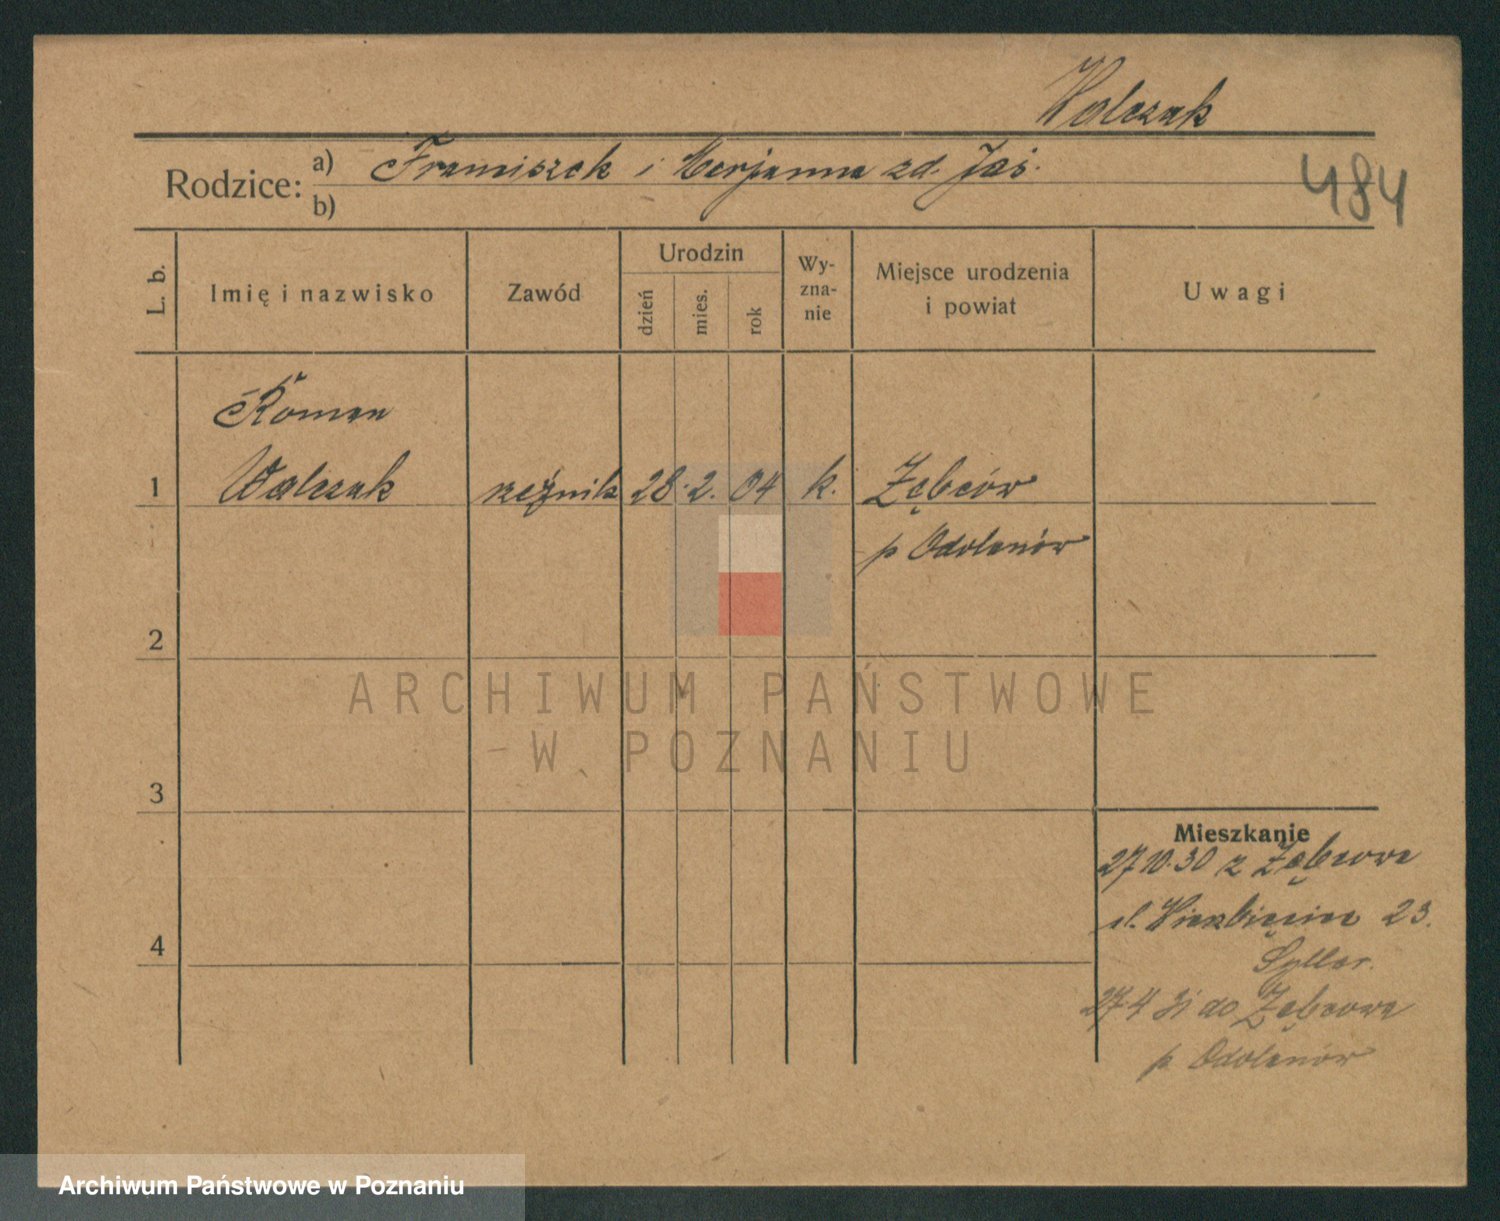 Walczak
Rodzice: a) Franciszek i Marjanna zd. Jaś.
b)
484
L. b.
Imię i nazwisko
Zawód
Urodzin
dzień
mies.
rok
Wy-
zna-
nie
Miejsce urodzenia
i powiat
Uwagi
Roman
1 Walczak rzeźnik 28. 2. 04 k. Zębców
p Odolanów
2
3
4
Mieszkanie
27 10.30 z Zębcowa
ul. Wierzbięcice 23.
27 4 31 do Zębcowa
p Odolanów
ARCHIWUM PAŃSTWOWE
W POZNANIU
Archiwum Państwowe w Poznaniu